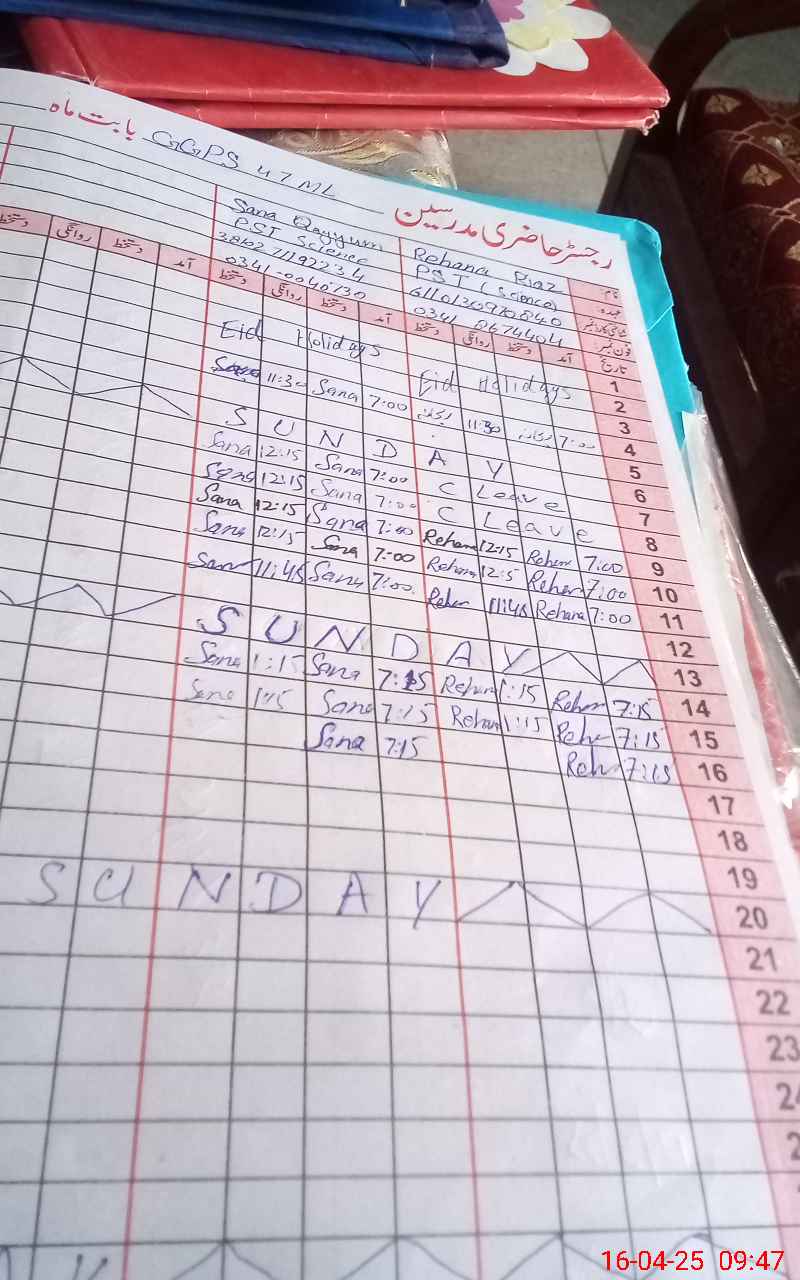 رجسٹر حاضری مدرسین GGPS 47 ML بابت ماہ
نام Rehana Riaz Sana Qayyum
عہدہ PST (Science) PST Science
فون نمبر 0341 0341-0040730
تاریخ آمد دستخط روانگی دستخط آمد دستخط روانگی دستخط آمد دستخط روانگی دستخط
1
2 Eid Holidays Eid Holidays
3
4 7:00 ریحانہ 11:30 ریحانہ 7:00 Sana 11:30 Sana
5
6 SUNDAY
7 C Leave 7:00 Sana 12:15 Sana
8 C Leave 7:00 Sana 12:15 Sana
9 7:00 Rehana 12:15 Rehana 7:00 Sana 12:15 Sana
10 7:00 Rehan 12:15 Rehana 7:00 Sana 12:15 Sana
11 7:00 Rehana 11:45 Rehan 7:00 Sana 11:45 Sana
12
13 SUNDAY
14 7:15 Rehan 1:15 Rehan 7:15 Sana 1:15 Sana
15 7:15 Reh 1:15 Rehan 7:15 Sana 1:15 Sana
16 7:15 Reh 7:15 Sana
17
18
19
20 SUNDAY
21
22
23
16-04-25 09:47